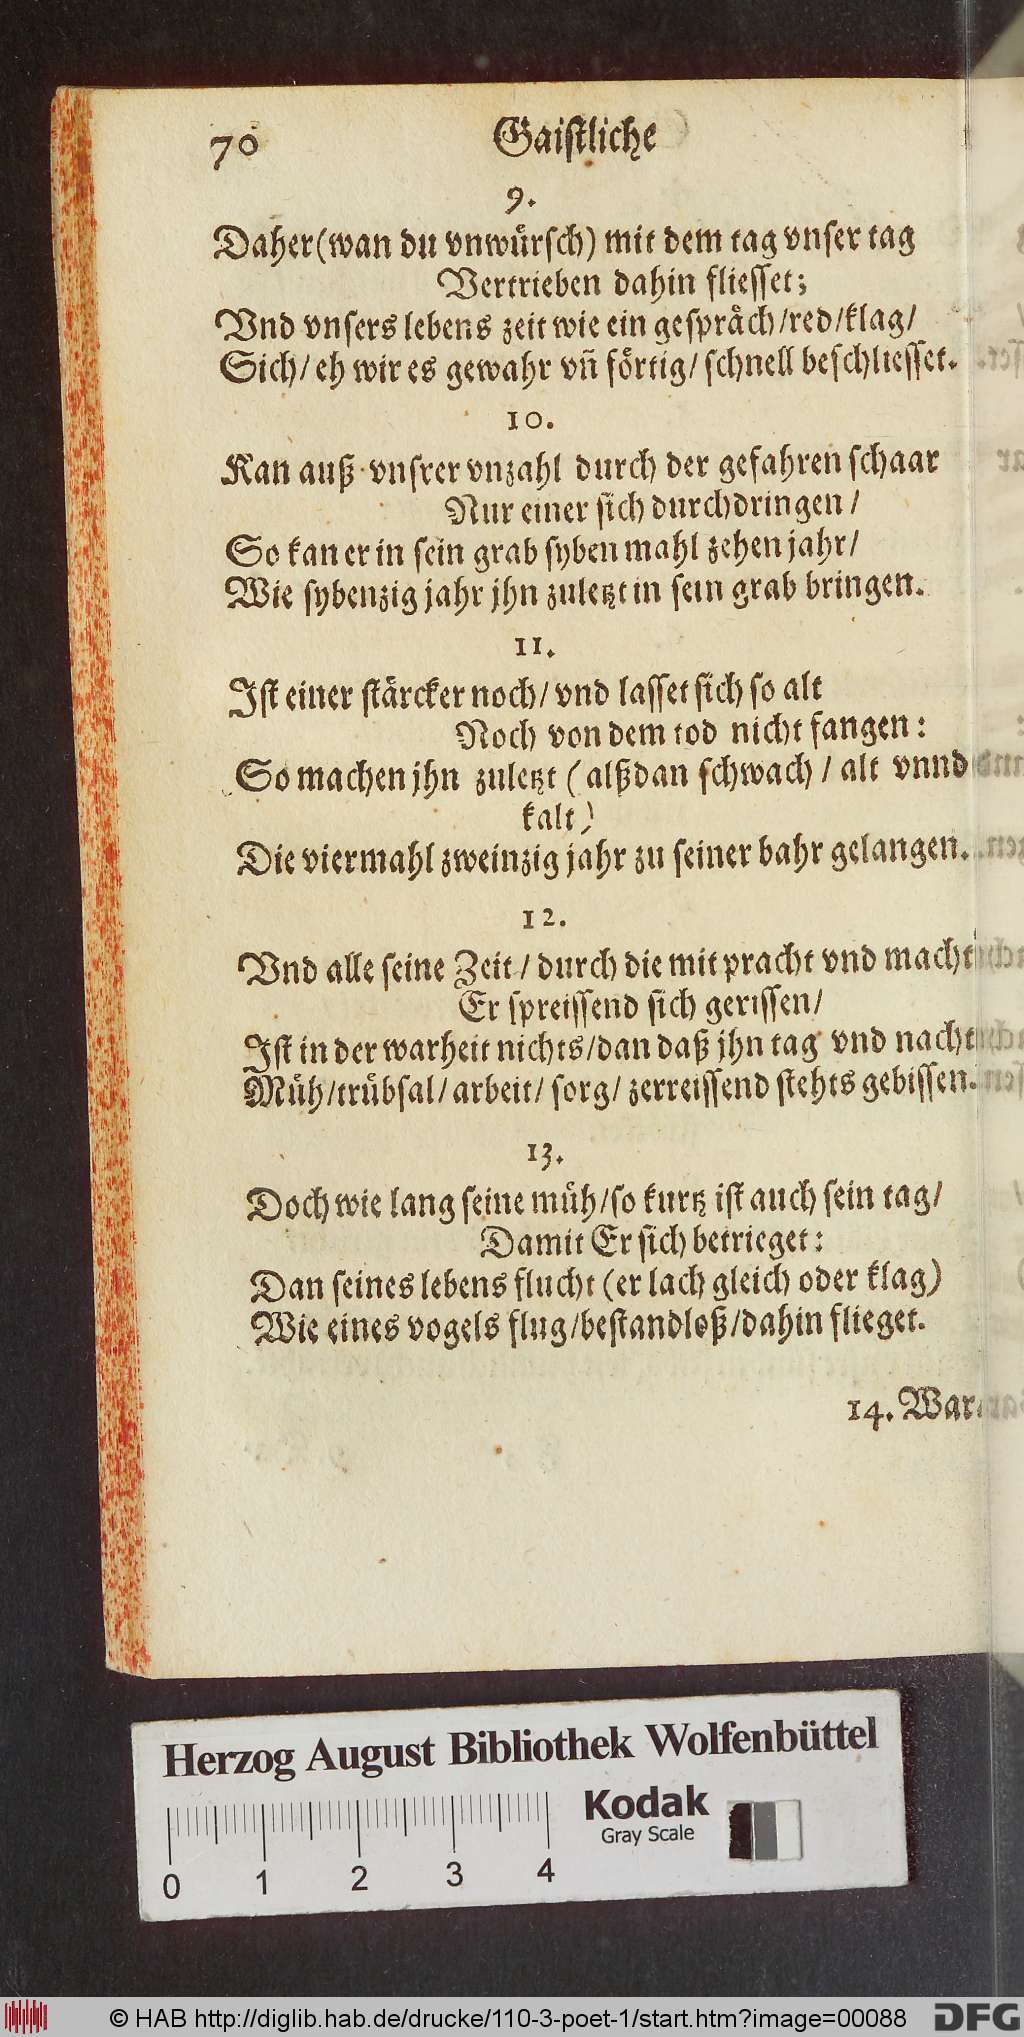 70 Gaistliche
9.
Daher (wan du vnwürsch) mit dem tag vnser tag
Vertrieben dahin fliesset;
Vnd vnsers lebens zeit wie ein gespräch/red/klag/
Sich/ eh wir es gewahr vñ förtig/ schnell beschliesset.
10.
Kan auß vnsrer vnzahl durch der gefahren schaar
Nur einer sich durchdringen/
So kan er in sein grab syben mahl zehen jahr/
Wie sybenzig jahr jhn zuletzt in sein grab bringen.
11.
Ist einer stärcker noch/ vnd lasset sich so alt
Noch von dem tod nicht fangen:
So machen jhn zuletzt (alßdan schwach/ alt vnnd
kalt)
Die viermahl zweinzig jahr zu seiner bahr gelangen.
12.
Vnd alle seine Zeit/ durch die mit pracht vnd macht
Er spreissend sich gerissen/
Ist in der warheit nichts/dan daß jhn tag vnd nacht
Müh/trübsal/ arbeit/ sorg/ zerreissend stehts gebissen.
13.
Doch wie lang seine müh/so kurtz ist auch sein tag/
Damit Er sich betrieget:
Dan seines lebens flucht (er lach gleich oder klag)
Wie eines vogels flug/bestandloß/dahin flieget.
14.
Herzog August Bibliothek Wolfenbüttel
Kodak
Gray Scale
0 1 2 3 4
© HAB http://diglib.hab.de/drucke/110-3-poet-1/start.htm?image=00088 DFG